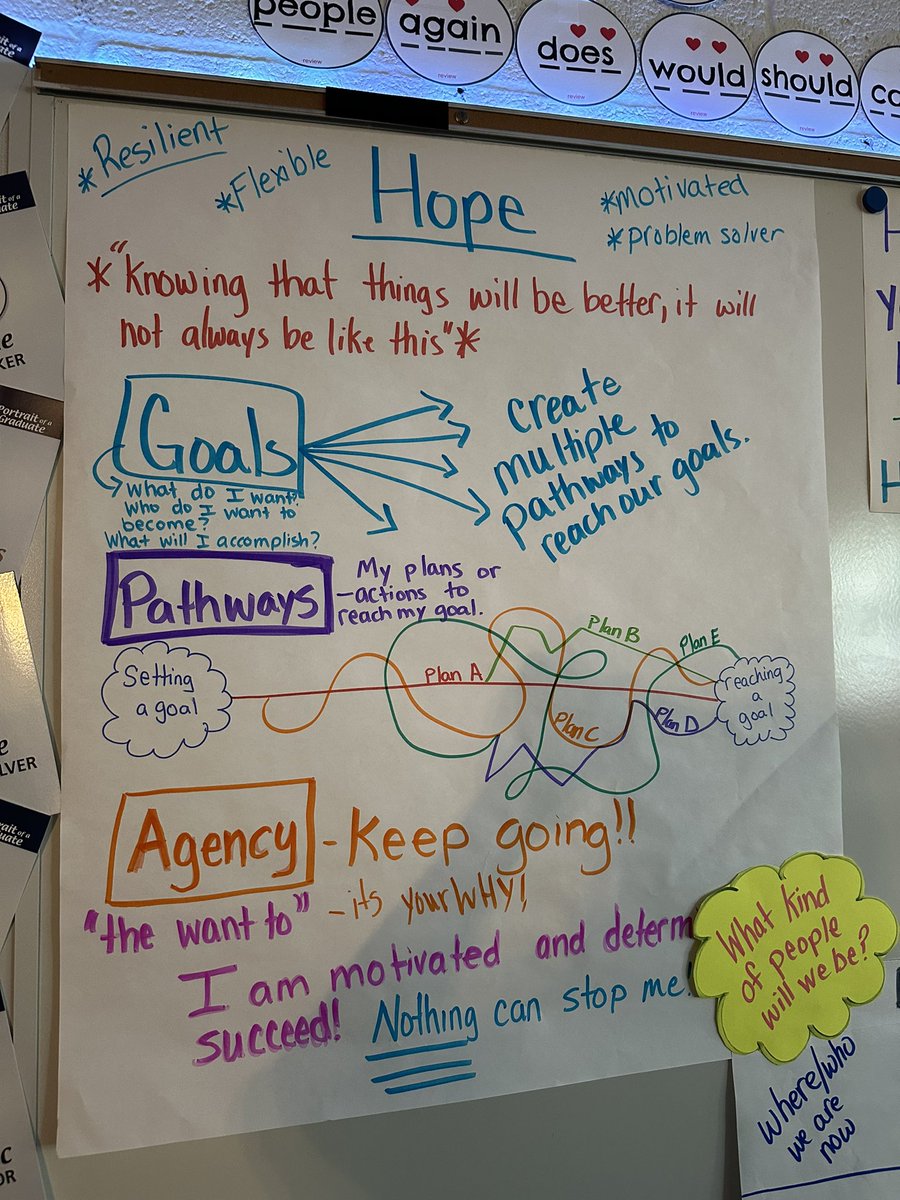 people
review
again
review
does
review
would
review
should
review
*Resilient
*Flexible
Hope
*motivated
*problem solver
*"Knowing that things will be better, it will
not always be like this"*
Goals
What do I want?
Who do I want to
become?
What will I accomplish?
Create
multiple
pathways to
reach our goals.
Pathways
My plans or
-actions to
reach my goal.
Setting
a goal
Plan A
Plan B
Plan C
Plan D
Plan E
reaching
a
goal
Agency
-Keep going!!
"the want to"
-its your WHY!
I am motivated and determ
succeed!
Nothing can stop me.
What kind
of people
will we be?
where/who
we are
now
Portrait of a
Graduate